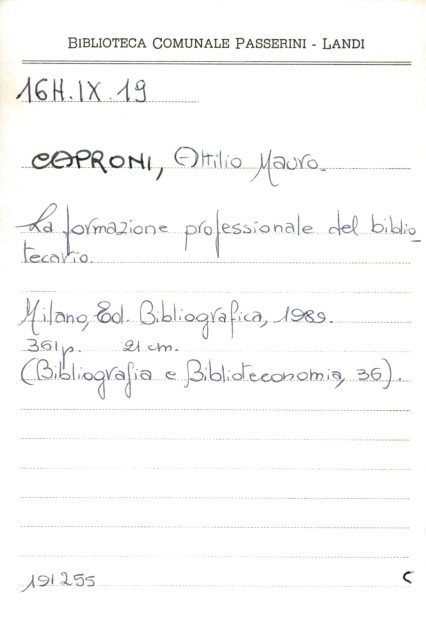 BIBLIOTECA COMUNALE PASSERINI - LANDI
16H.IX.19
CAPRONI, Attilio Mauro.
La formazione professionale del biblio-
tecario.
Milano, Ed. Bibliografica, 1989.
361 p. 21 cm.
(Bibliografia e Biblioteconomia, 36).
191255 C